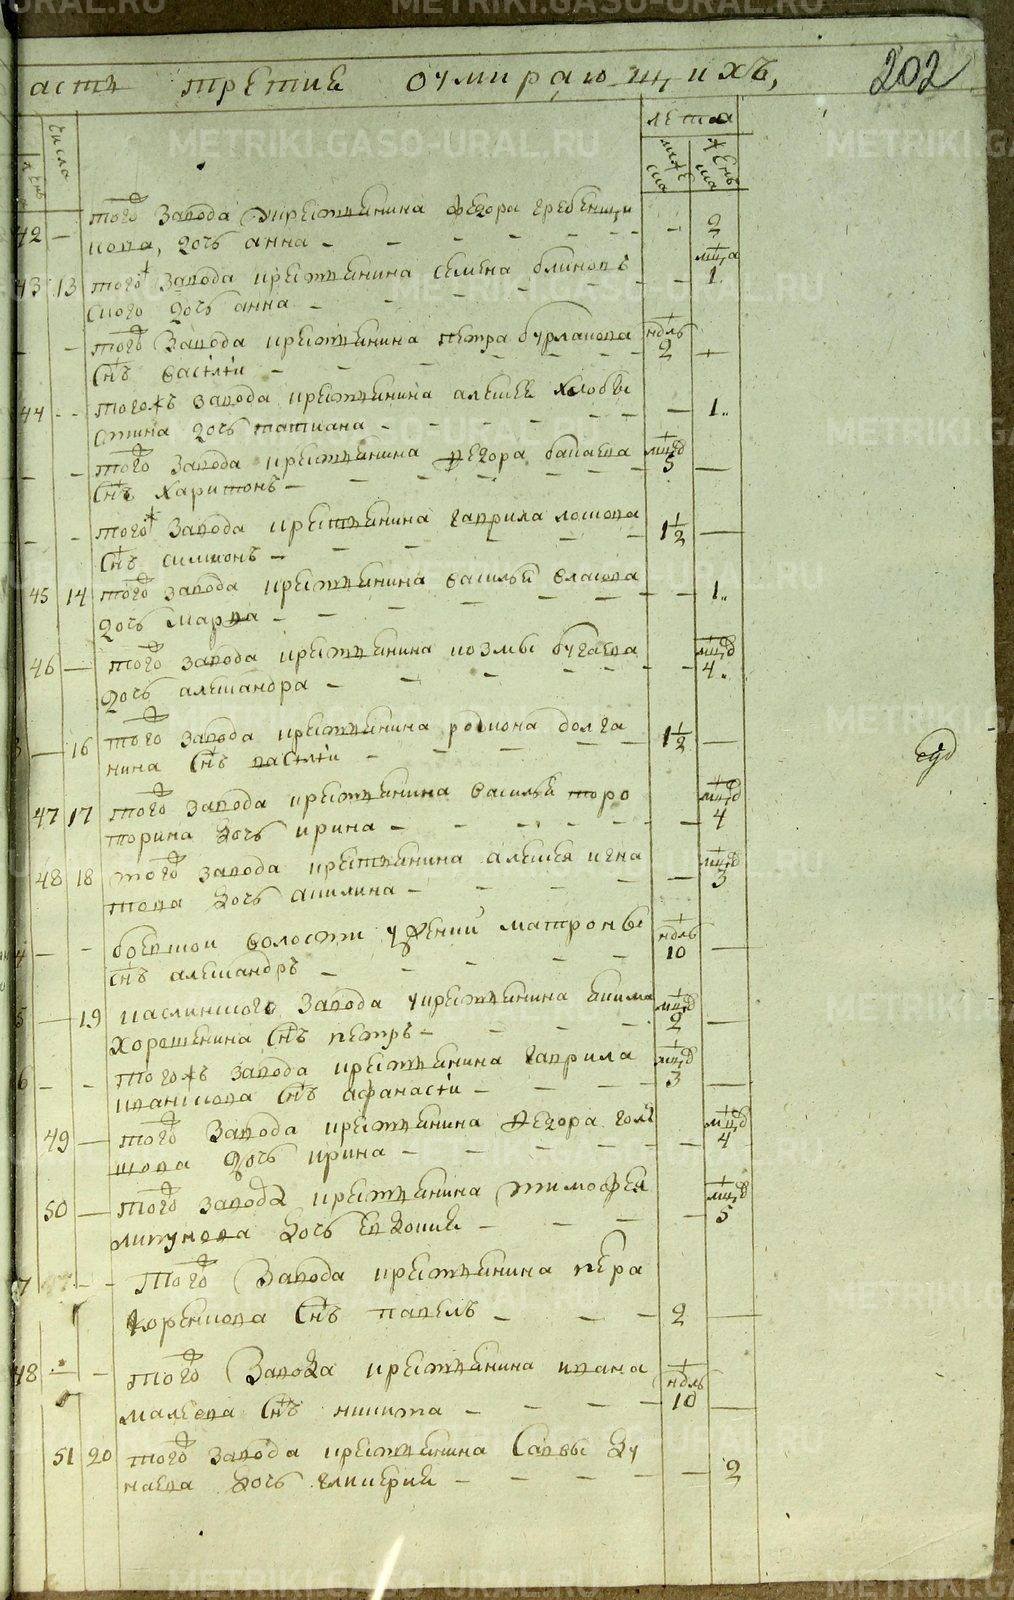 METRIKI.GASO-URAL.RU
асть третие оумирающихъ,
202
числа
лета
муже
ска
женъ
ска
42 — того Завода крестьянина федора гребенщи
кова, дочь анна — 2
43 13 того Завода крестьянина семена блиновъ
ского дочь анна — мца 1
— того Завода крестьянина петра бурлакова
снъ василеи — ндль 2
44 — тогожъ завода крестьянина алексея
стина дочь татиана — 1
— того Завода крестьянина федора бабаева
снъ харитонъ — мцд 5
— того Завода крестьянина гаврила
снъ симионъ — 1½ —
45 14 того завода крестьянина василья власова
дочь марѳа — 1
46 — того завода крестьянина козмы бугаева
дочь александра — мцд 4
— 16 того завода крестьянина родиона долга
нина снъ василеи — 1½ —
47 17 того завода крестьянина василья торо
торина дочь ирина — мцд 4
48 18 того завода крестьянина алексея игна
това дочь акилина — мцд 3
— волости матроны
снъ александръ — ндль 10 —
5 — 19 каслинского Завода крестьянина екима
хорошенина снъ петръ — мцд 2 —
6 — тогожъ завода крестьянина гаврила
снъ афанасеи — мцд 3 —
49 — того Завода крестьянина федора голы
шова дочь ирина — мцд 4
50 — того завода крестьянина тимофея
липунова дочь евдокия — мцд 5
7 — того Завода крестьянина
снъ павелъ — 2 —
48 — того Завода крестьянина ивана
малеева снъ никита — ндль 10 —
51 20 того завода крестьянина савы ду
наева дочь гликерия — 2